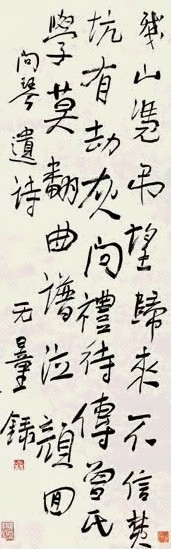 峩山憑弔望歸來不信焚
坑有劫灰問禮待傳曾氏
學莫翻曲譜泣顏回
問琴遺詩
无量
錄